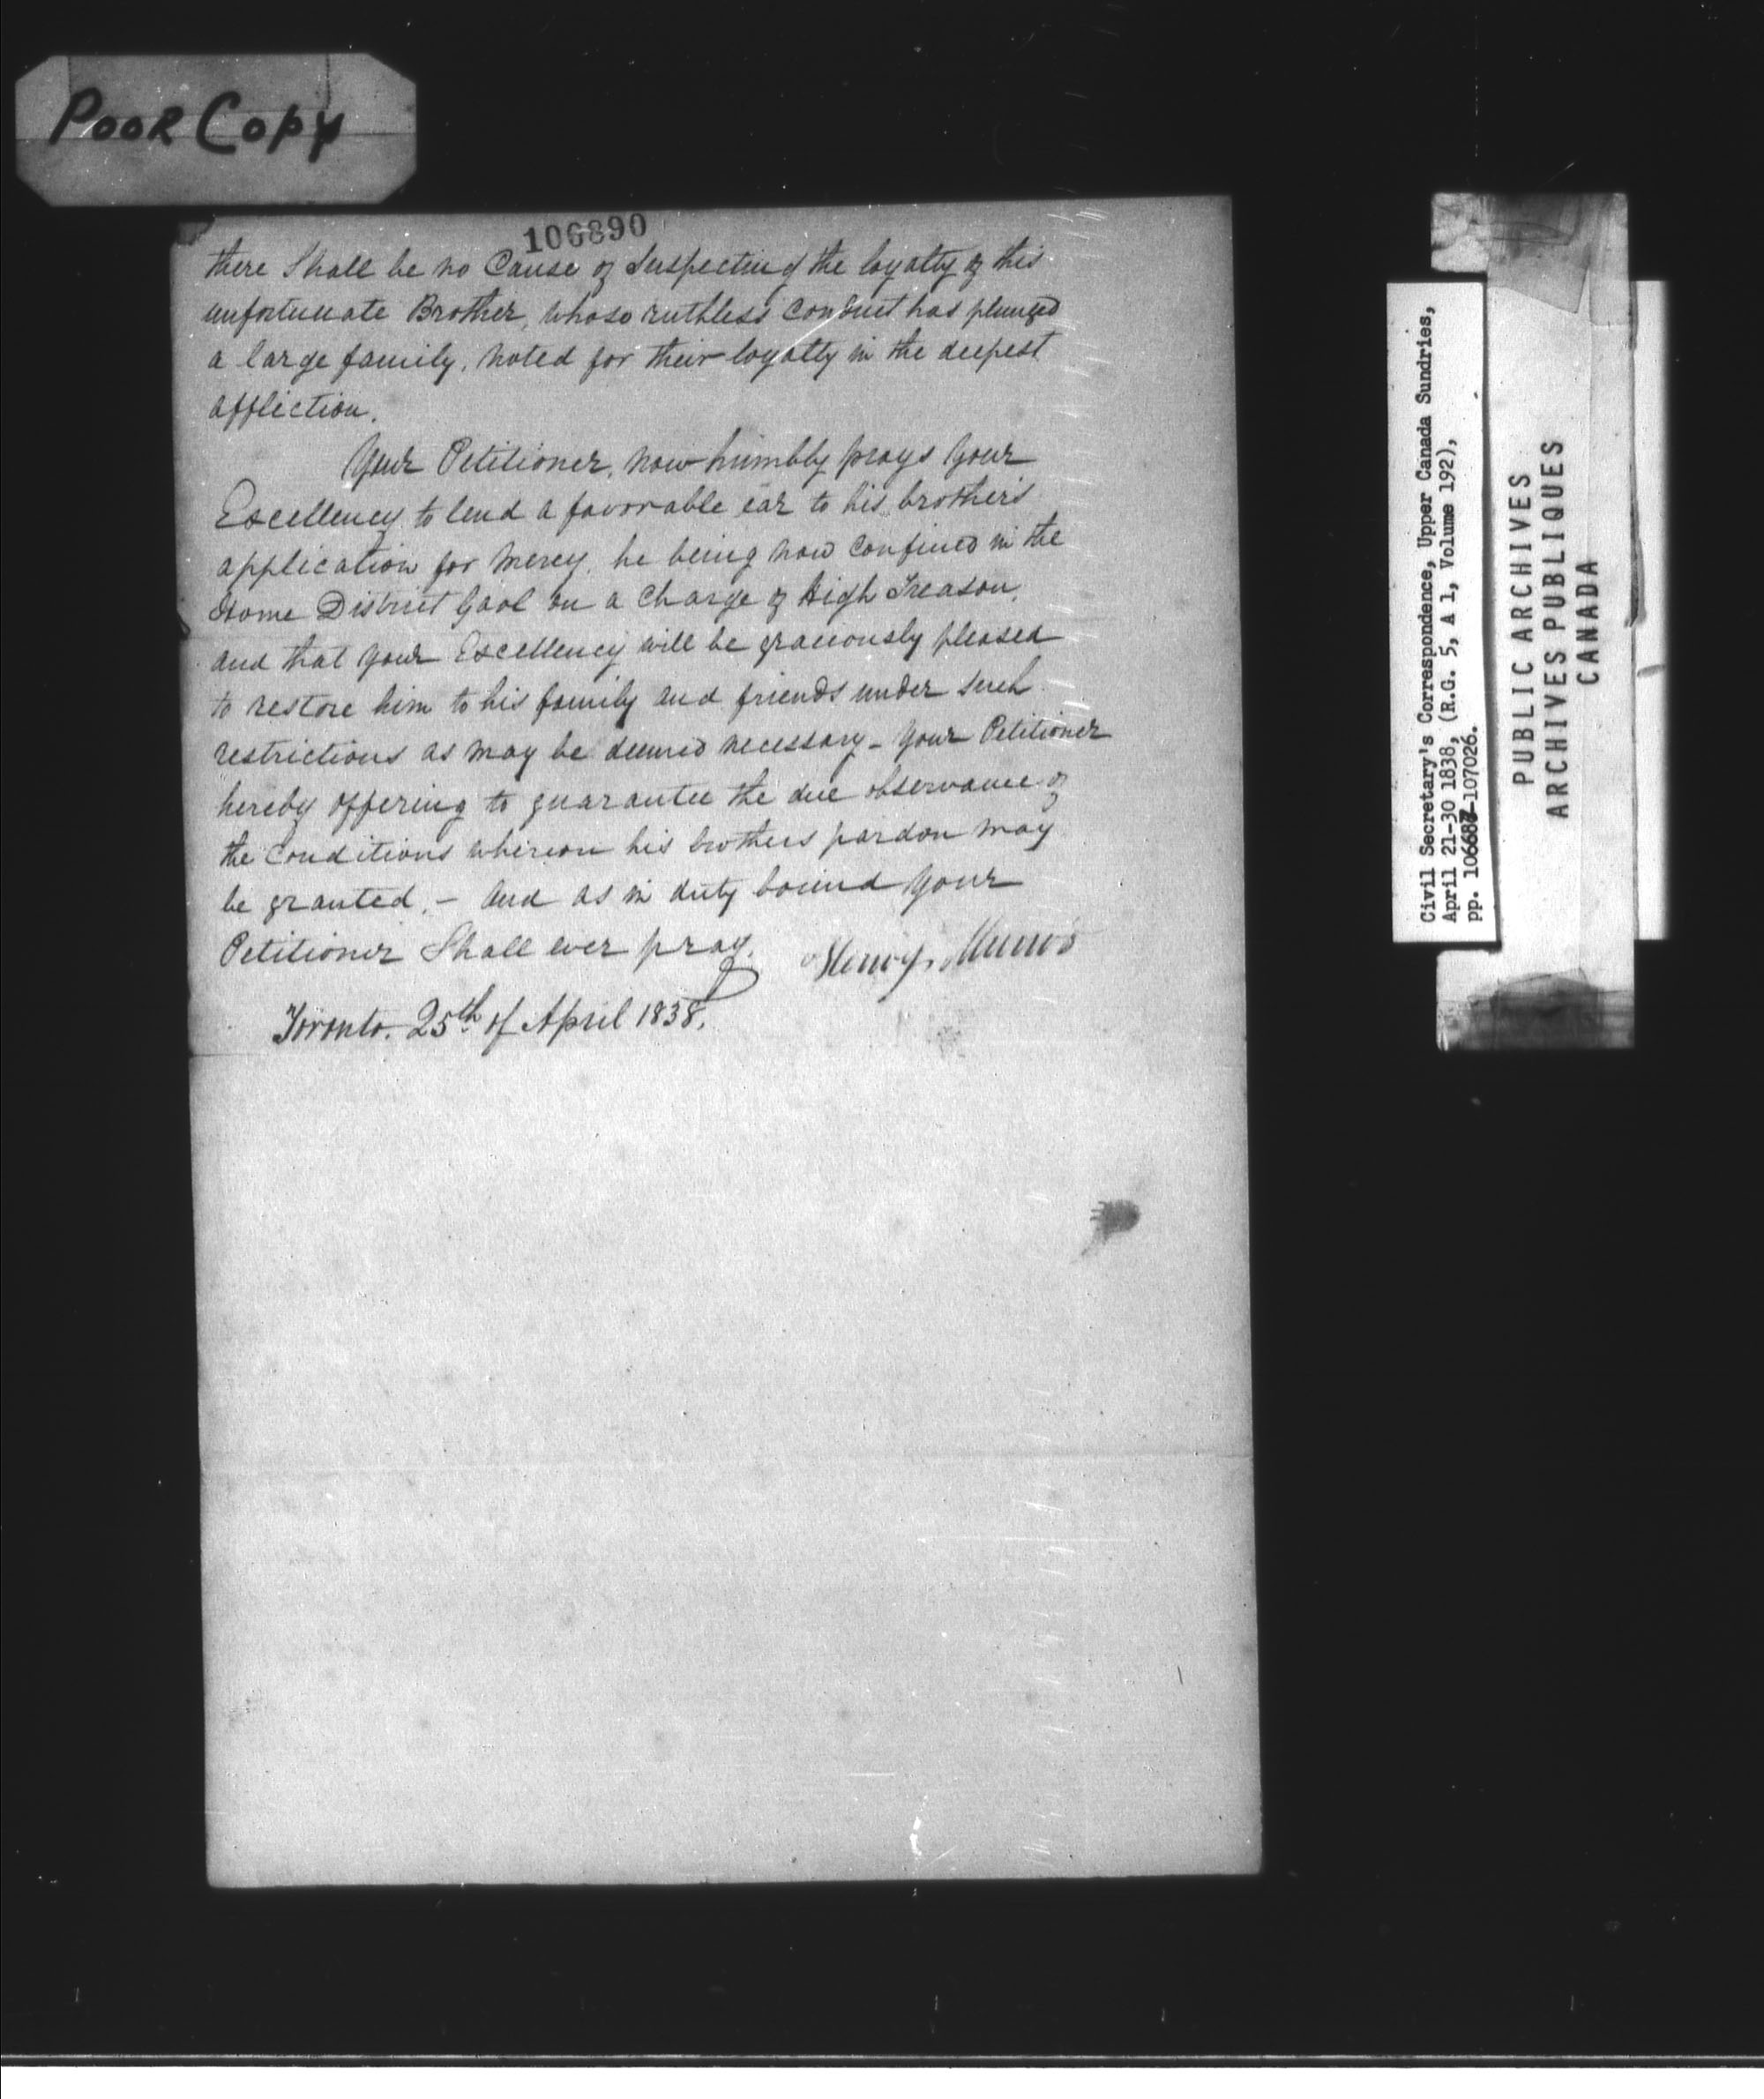 Poor Copy
106890
there Shall be no Cause of Suspecting the loyalty of this
unfortunate Brother, whose ruthless conduct has plunged
a large family, noted for their loyalty in the deepest
affliction.
Your Petitioner, now humbly prays Your
Excellency to lend a favorable ear to his brother's
application for Mercy, he being now confined in the
Home District Gaol on a charge of High Treason,
and that Your Excellency will be graciously pleased
to restore him to his family and friends under such
restrictions as may be deemed necessary - Your Petitioner
hereby offering to guarantee the due observance of
the conditions whereon his brothers pardon may
be granted. - And as in duty bound Your
Petitioner Shall ever pray.
Henry Munro
Toronto. 25th of April 1838.
Civil Secretary's Correspondence, Upper Canada Sundries,
April 21-30 1838, (R.G. 5, A 1, Volume 192),
pp. 106687-107026.
PUBLIC ARCHIVES
ARCHIVES PUBLIQUES
CANADA